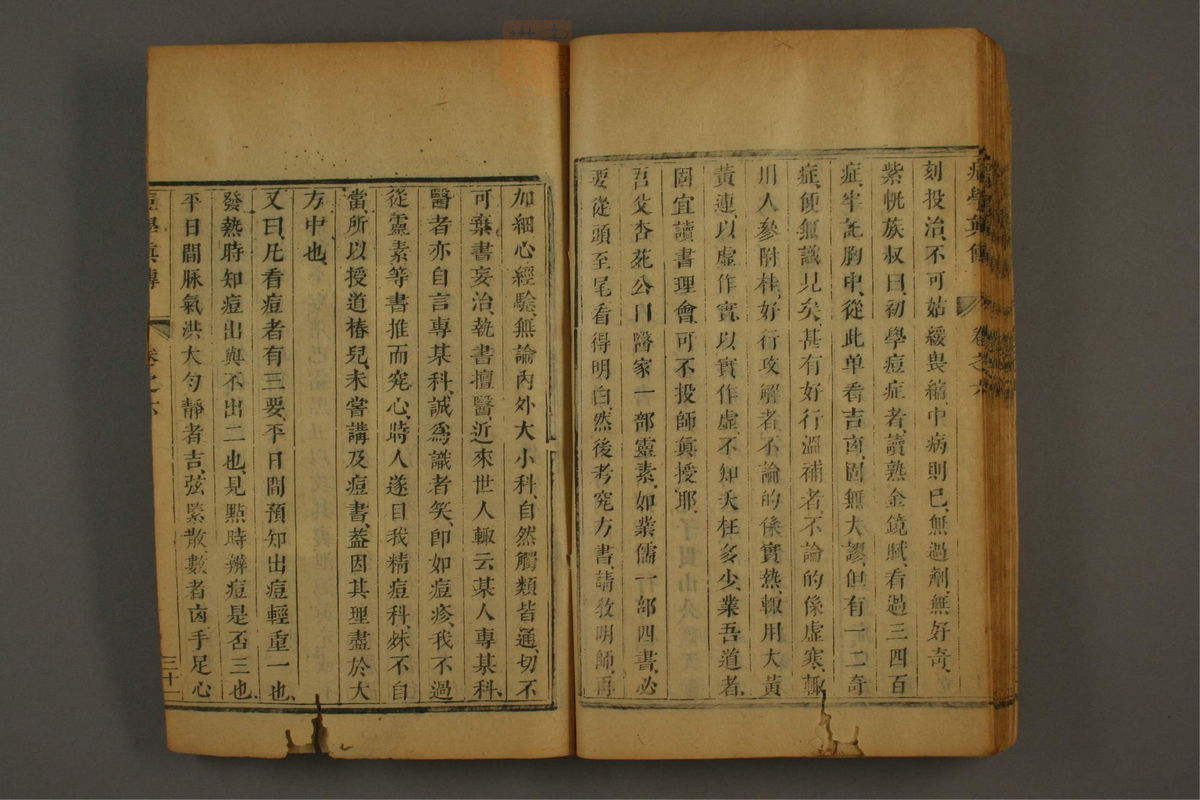 痘學真傳 卷之六
刻投治、不可姑緩畏縮、中病則已、無過劑、無好奇、
紫恍族叔曰、初學痘症者、讀熟金鏡賦、看過三四百
症、牢記胸中、從此单看吉凶、固無大謬、但有一二奇
症、便無識見矣、甚有好行溫補者、不論的係虛寒、輒
用人參附桂、好行攻解者、不論的係實熱、輒用大黃
黃連、以虛作實、以實作虛、不知夭枉多少、業吾道者、
固宜讀書理會、可不投師真授耶、
吾父杏苑公曰、醫家一部靈素、如業儒一部四書、必
要從頭至尾看得明白、然後考究方書、請教明師、再
加細心經驗、無論內外大小科、自然觸類皆通、切不
可棄書妄治、執書擅醫、近來世人輒云、某人專某科、
醫者亦自言專某科、誠為識者笑、即如痘疹、我不過
從靈素等書推而究心、時人遂目我精痘科、殊不自
當、所以授道椿兒、未嘗講及痘書、葢因其理盡於大
方中也、
又曰、凡看痘者有三要、平日間預知出痘輕重一也、
發熱時知痘出與不出二也、見點時辨痘是否三也、
平日間脉氣洪大勻靜者吉、弦緊散數者凶、手足心
痘學真傳 卷之六 三十一